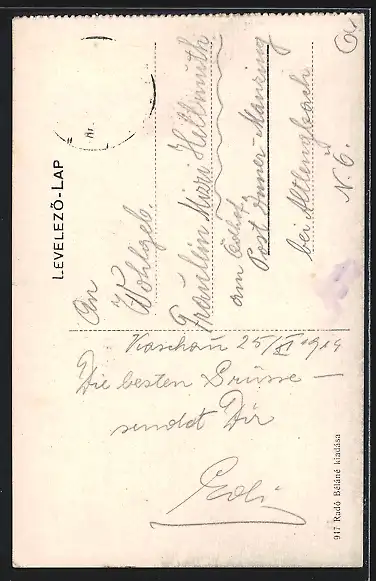 LEVELEZŐ-LAP
An
Wohlgeb.
Fräulein Mizzi Hellmuth
am
Post Inner-Manzing
bei Altlengbach
N. 6.
Kaschau 25/XI 1914
Die besten Grüsse —
sendet Dir
Edi
917 Radó Béláné kiadása